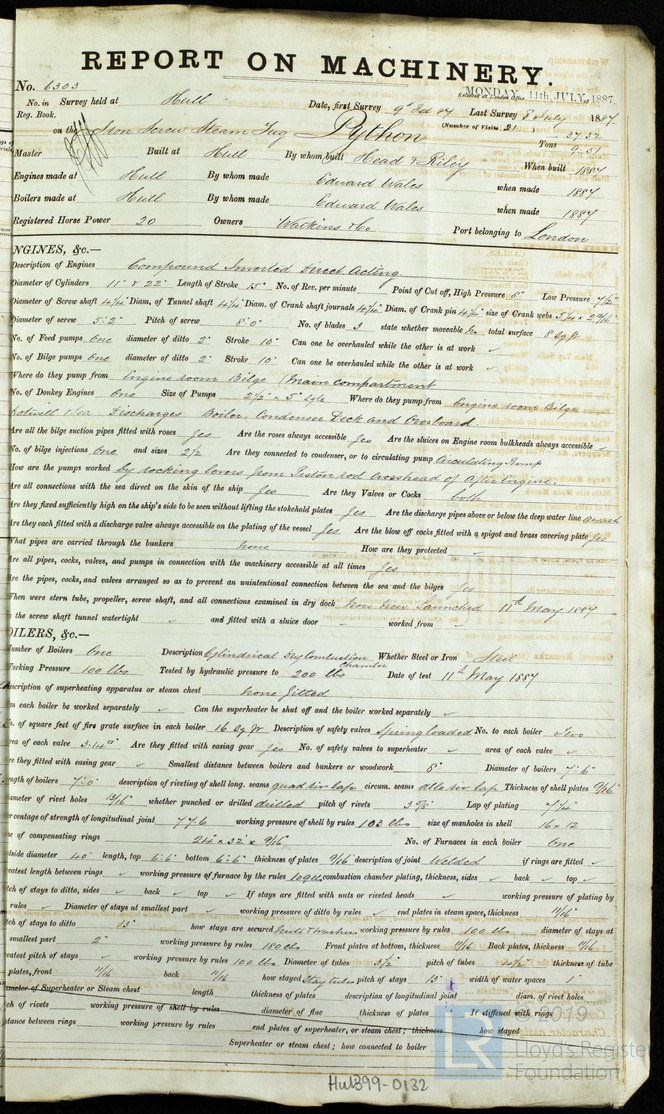 REPORT ON MACHINERY.
No. 6303 MONDAY, 11th JULY, 1887
Received at London Office
No. in Survey held at Hull Date, first Survey 9th Feb 87 Last Survey 8th July 1887
Reg. Book. (Number of Visits 21)
on the Iron Screw Steam Tug Python Tons 37.37 9.51
Master Built at Hull By whom built Head & Riley When built 1887
Engines made at Hull By whom made Edward Wales when made 1887
Boilers made at Hull By whom made Edward Wales when made 1887
Registered Horse Power 20 Owners Watkins & Co Port belonging to London
NGINES, &c.—
Description of Engines Compound Inverted Direct Acting
Diameter of Cylinders 11" & 22" Length of Stroke 15" No. of Rev. per minute Point of Cut off, High Pressure 8" Low Pressure 7½"
Diameter of Screw shaft Diam. of Tunnel shaft Diam. of Crank shaft journals Diam. of Crank pin size of Crank webs
Diameter of screw 5'.2" Pitch of screw 8'.0" No. of blades 3 state whether moveable No total surface 8 sq ft
No. of Feed pumps One diameter of ditto 2" Stroke 10" Can one be overhauled while the other is at work ✓
No. of Bilge pumps One diameter of ditto 2" Stroke 10" Can one be overhauled while the other is at work ✓
Where do they pump from Engine room Bilge (Main Compartment
No. of Donkey Engines One Size of Pumps 2½" x 5" Where do they pump from Engine room Bilge
Hotwell & Sea Discharges Boiler Condenser Deck and Overboard
Are all the bilge suction pipes fitted with roses Yes Are the roses always accessible Yes Are the sluices on Engine room bulkheads always accessible ✓
No. of bilge injections One and sizes 2½ Are they connected to condenser, or to circulating pump Circulating Pump
How are the pumps worked by rocking levers from Piston rod Crosshead of After Engine.
Are all connections with the sea direct on the skin of the ship Yes Are they Valves or Cocks both
Are they fixed sufficiently high on the ship's side to be seen without lifting the stokehold plates Yes Are the discharge pipes above or below the deep water line
Are they each fitted with a discharge valve always accessible on the plating of the vessel Yes Are the blow off cocks fitted with a spigot and brass covering plate Yes
What pipes are carried through the bunkers None How are they protected ✓
Are all pipes, cocks, valves, and pumps in connection with the machinery accessible at all times Yes
Are the pipes, cocks, and valves arranged so as to prevent an unintentional connection between the sea and the bilges Yes
When were stern tube, propeller, screw shaft, and all connections examined in dry dock Launched 11th May 1887
the screw shaft tunnel watertight ✓ and fitted with a sluice door ✓ worked from ✓
OILERS, &c.—
Number of Boilers One Description Cylindrical Dry Combustion Chamber Whether Steel or Iron Steel
Working Pressure 100 lbs Tested by hydraulic pressure to 200 lbs Date of test 11th May 1887
Description of superheating apparatus or steam chest None fitted
an each boiler be worked separately ✓ Can the superheater be shut off and the boiler worked separately
o. of square feet of fire grate surface in each boiler 16 sq ft Description of safety valves Spring loaded No. to each boiler Two
rea of each valve 3.14" Are they fitted with easing gear Yes No. of safety valves to superheater ✓ area of each valve ✓
re they fitted with easing gear ✓ Smallest distance between boilers and bunkers or woodwork 8" Diameter of boilers 7'.6
ength of boilers 7'.0" description of riveting of shell long. seams circum. seams Thickness of shell plates 9/16"
ameter of rivet holes 13/16" whether punched or drilled drilled pitch of rivets Lap of plating 7¼"
rcentage of strength of longitudinal joint 77.6 working pressure of shell by rules 103 lbs size of manholes in shell 16 x 12
ze of compensating rings 24" x 32" x 9/16" No. of Furnaces in each boiler One
utside diameter 40" length, top 6'.6" bottom 6'.6" thickness of plates 9/16" description of joint Welded if rings are fitted ✓
eatest length between rings ✓ working pressure of furnace by the rules combustion chamber plating, thickness, sides ✓ back ✓ top ✓
tch of stays to ditto, sides ✓ back ✓ top ✓ If stays are fitted with nuts or riveted heads ✓ working pressure of plating by
rules ✓ Diameter of stays at smallest part ✓ working pressure of ditto by rules ✓ end plates in steam space, thickness 11/16"
tch of stays to ditto 13" how stays are secured working pressure by rules 100 lbs diameter of stays at
smallest part 2" working pressure by rules Front plates at bottom, thickness 11/16 Back plates, thickness 11/16
eatest pitch of stays ✓ working pressure by rules 100 lbs Diameter of tubes 3½" pitch of tubes thickness of tube
plates, front 11/16 back 11/16 how stayed Stay tubes pitch of stays 13" width of water spaces 1"
ameter of Superheater or Steam chest length thickness of plates description of longitudinal joint diam. of rivet holes
ch of rivets working pressure of shell by rules diameter of flue thickness of plates If stiffened with rings
stance between rings working pressure by rules end plates of superheater, or steam chest; thickness how stayed
Superheater or steam chest; how connected to boiler
Hul399-0132
©2019
LR Lloyd's Register
Foundation